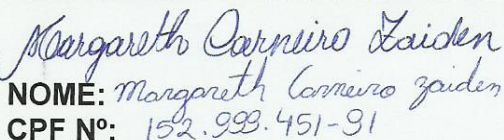 Margareth Carneiro Zaiden
NOME: Margareth Carneiro zaiden
CPF Nº: 152.999.451-91